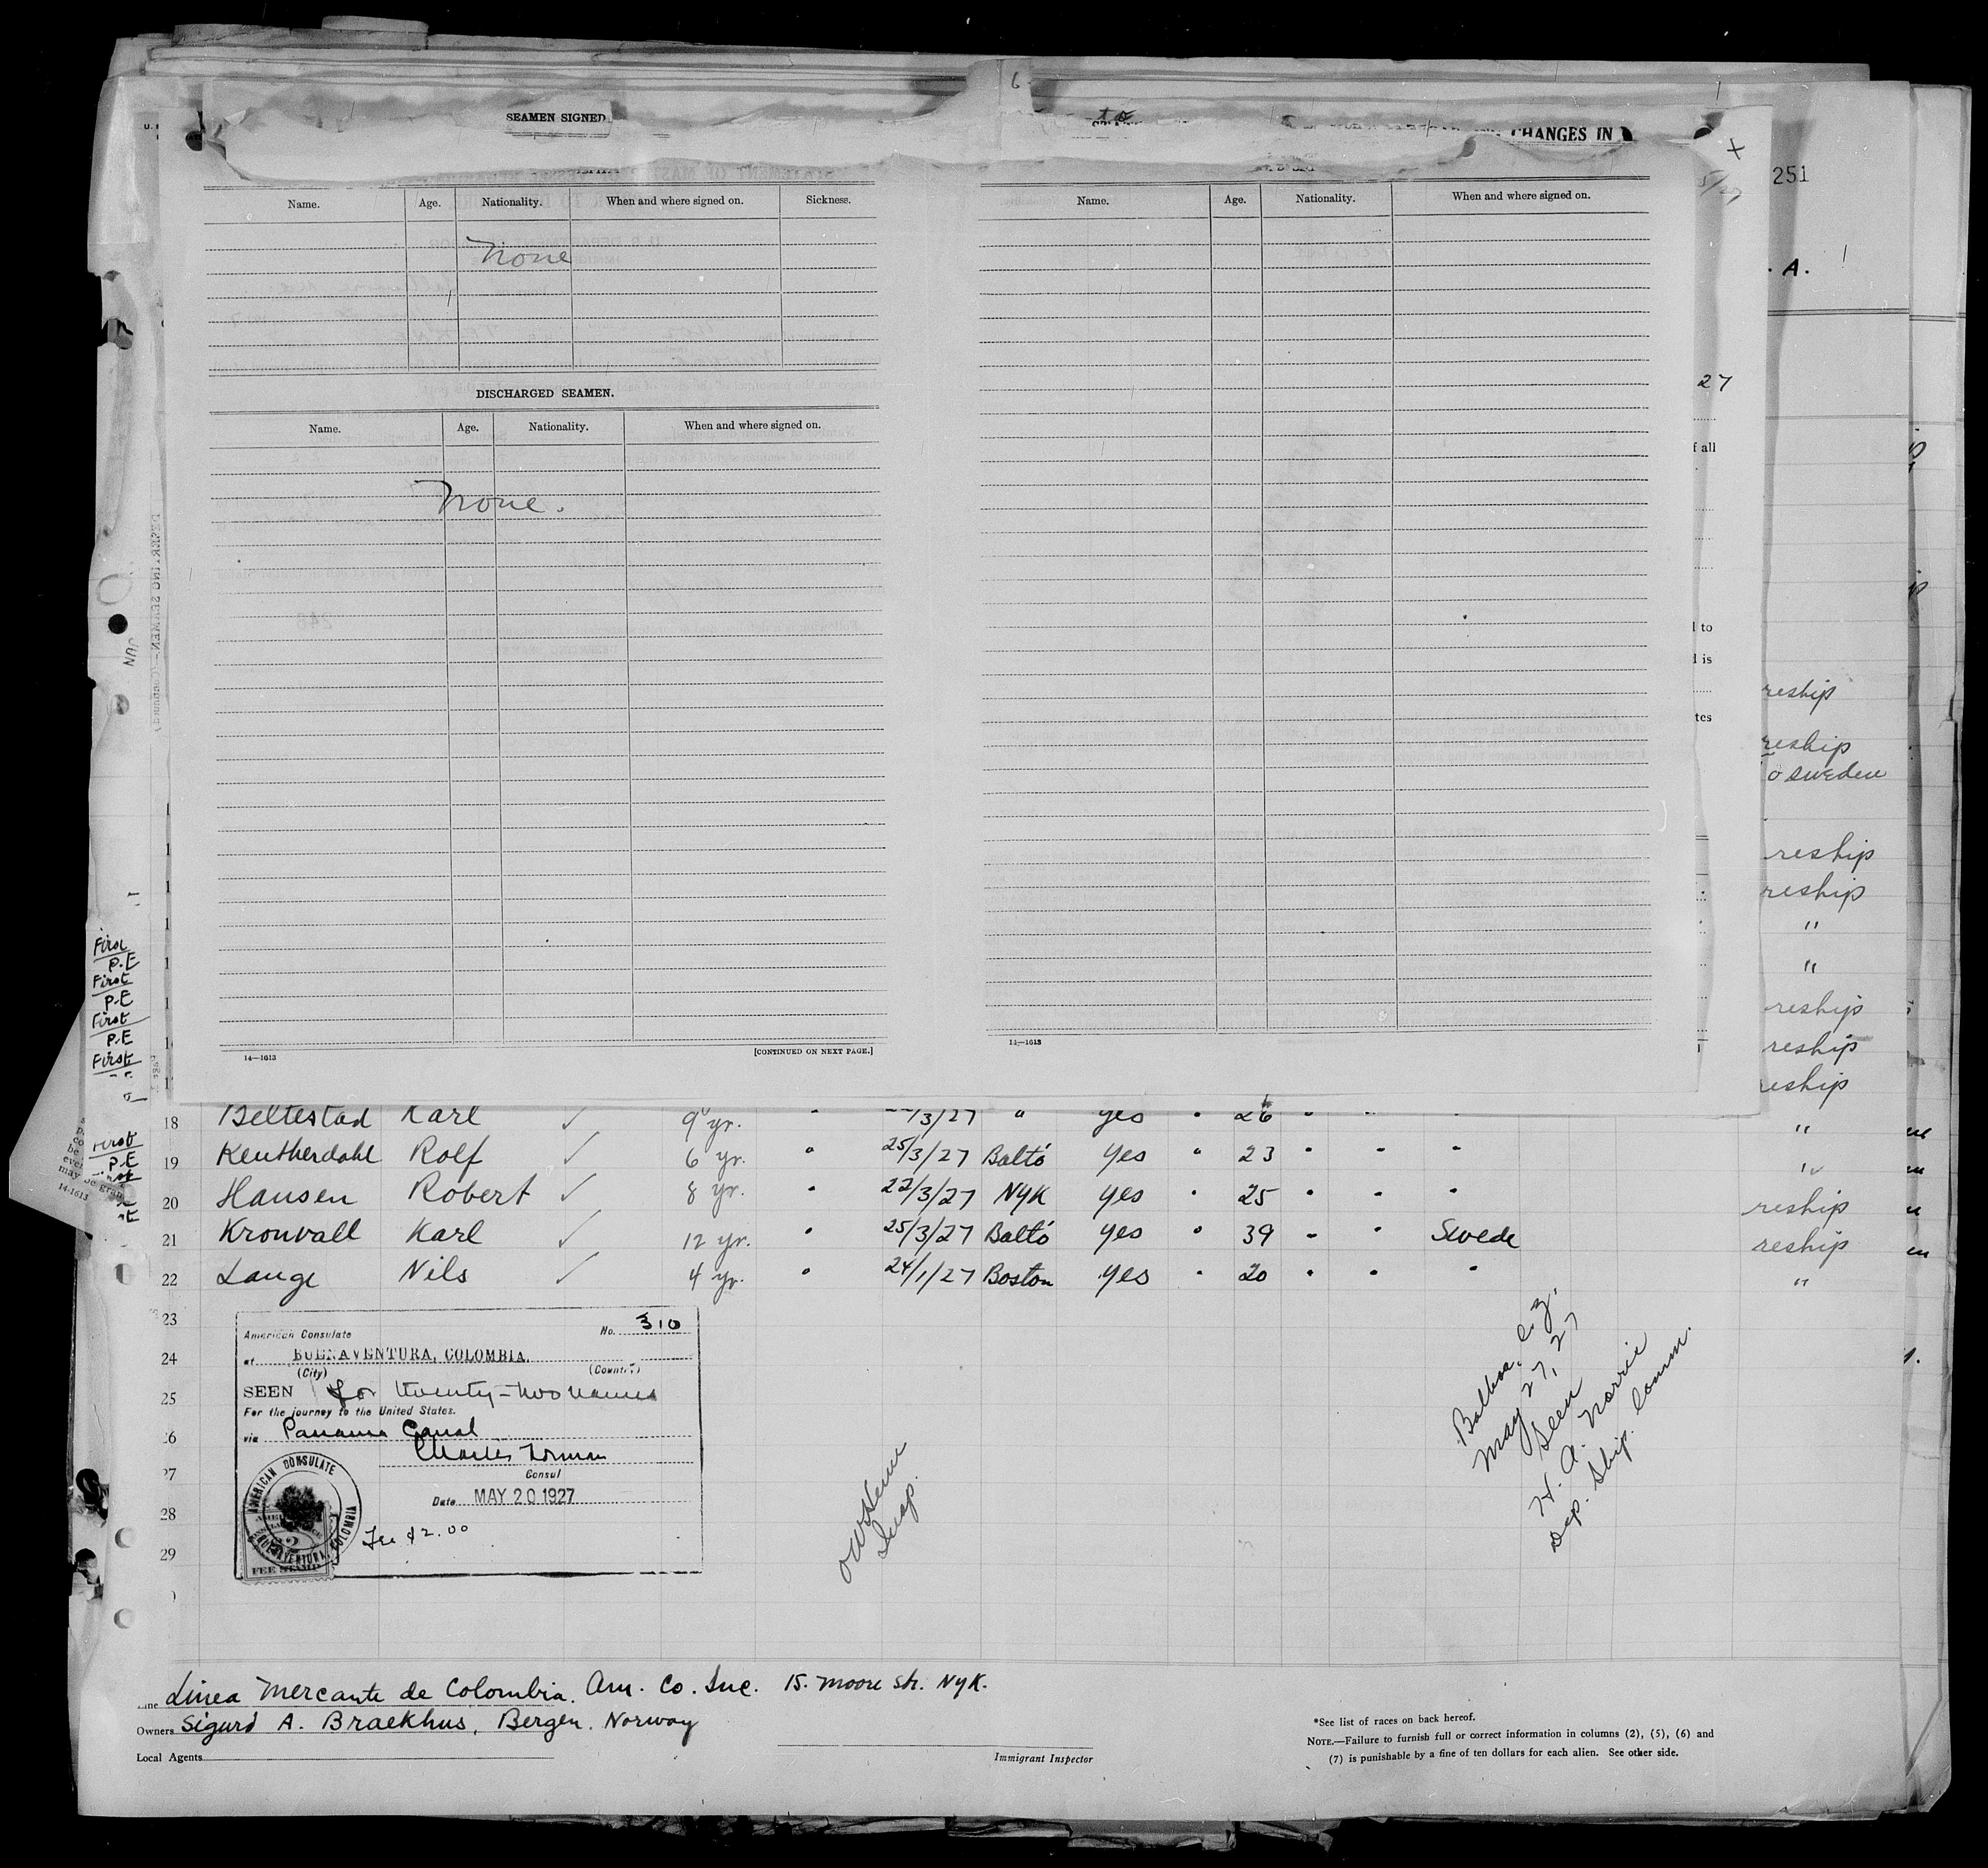 SEAMEN SIGNED
to
CHANGES IN
251
Name. Age. Nationality. When and where signed on. Sickness.
None
DISCHARGED SEAMEN.
Name. Age. Nationality. When and where signed on.
None.
14—1613 [CONTINUED ON NEXT PAGE.]
Name. Age. Nationality. When and where signed on.
14—1613
. A.
27
f all
to
is
tes
JUN
reship
reship
o Sweden
reship
reship
"
"
reship
reship
reship
First
P.E
First
P.E
First
P.E
First
First
P.E
14-1613
18 Beltestad Karl ✓ 9 yr. " /3/27 " yes " 26 " " " "
19 Keutherdahl Rolf ✓ 6 yr. " 25/3/27 Balto yes " 23 " " " "
20 Hansen Robert ✓ 8 yr. " 22/3/27 NYK yes " 25 " " " reship
21 Kronvall Karl ✓ 12 yr. " 25/3/27 Balto yes " 39 " " Swede reship
22 Lange Nils ✓ 4 yr. " 24/1/27 Boston yes " 20 " " " "
23
24
25
26
27
28
29
American Consulate No. 310
at BUENAVENTURA, COLOMBIA.
(City) (Country)
SEEN for twenty-two names
For the journey to the United States.
via Panama Canal
Charles Forman
Consul
Date MAY 20 1927
Fee $2.00
AMERICAN CONSULATE
BUENAVENTURA, COLOMBIA
FEE STAMP
Insp.
Balboa, C.Z.
May 27, 27
Seen
H. A. Norris
Dep. Ship. Comm.
Line Linea Mercante de Colombia. Am. Co. Inc. 15. Moore Str. NYK.
Owners Sigurd A. Braekhus, Bergen. Norway
Local Agents
Immigrant Inspector
*See list of races on back hereof.
NOTE.—Failure to furnish full or correct information in columns (2), (5), (6) and
(7) is punishable by a fine of ten dollars for each alien. See other side.